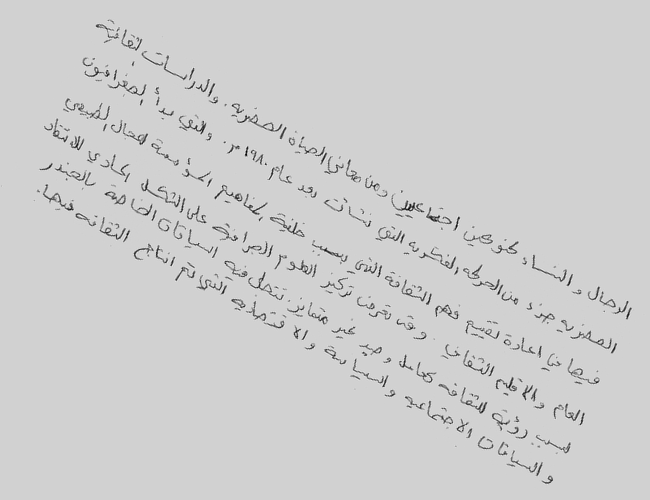 الرجال و النساء كنوعين اجتماعيين ومن معاني الحياة الحضريه. والدراسات الثقافية
الحضريه جزء من الحركه الفكريه التي نشأت بعد عام ١٩٨٠م. والتي بدأ الجغرافيون
فيها في اعادة تقييم فهم الثقافة التي بسبب خلفية المفاهيم المؤسسة للمجال الطبيعي
العام والاقليم الثقافي. وقد تعرض تركيز العلوم الجغرافية على الشكل المادي للانتقاد
بسبب رؤية الثقافه كعامل وحيد غير متمايز. تتمثل فيه السياقات الخاصة بالجندر
و السياقات الاجتماعيه والسياسة والاقتصاديه التي تم انتاج الثقافه فيها.